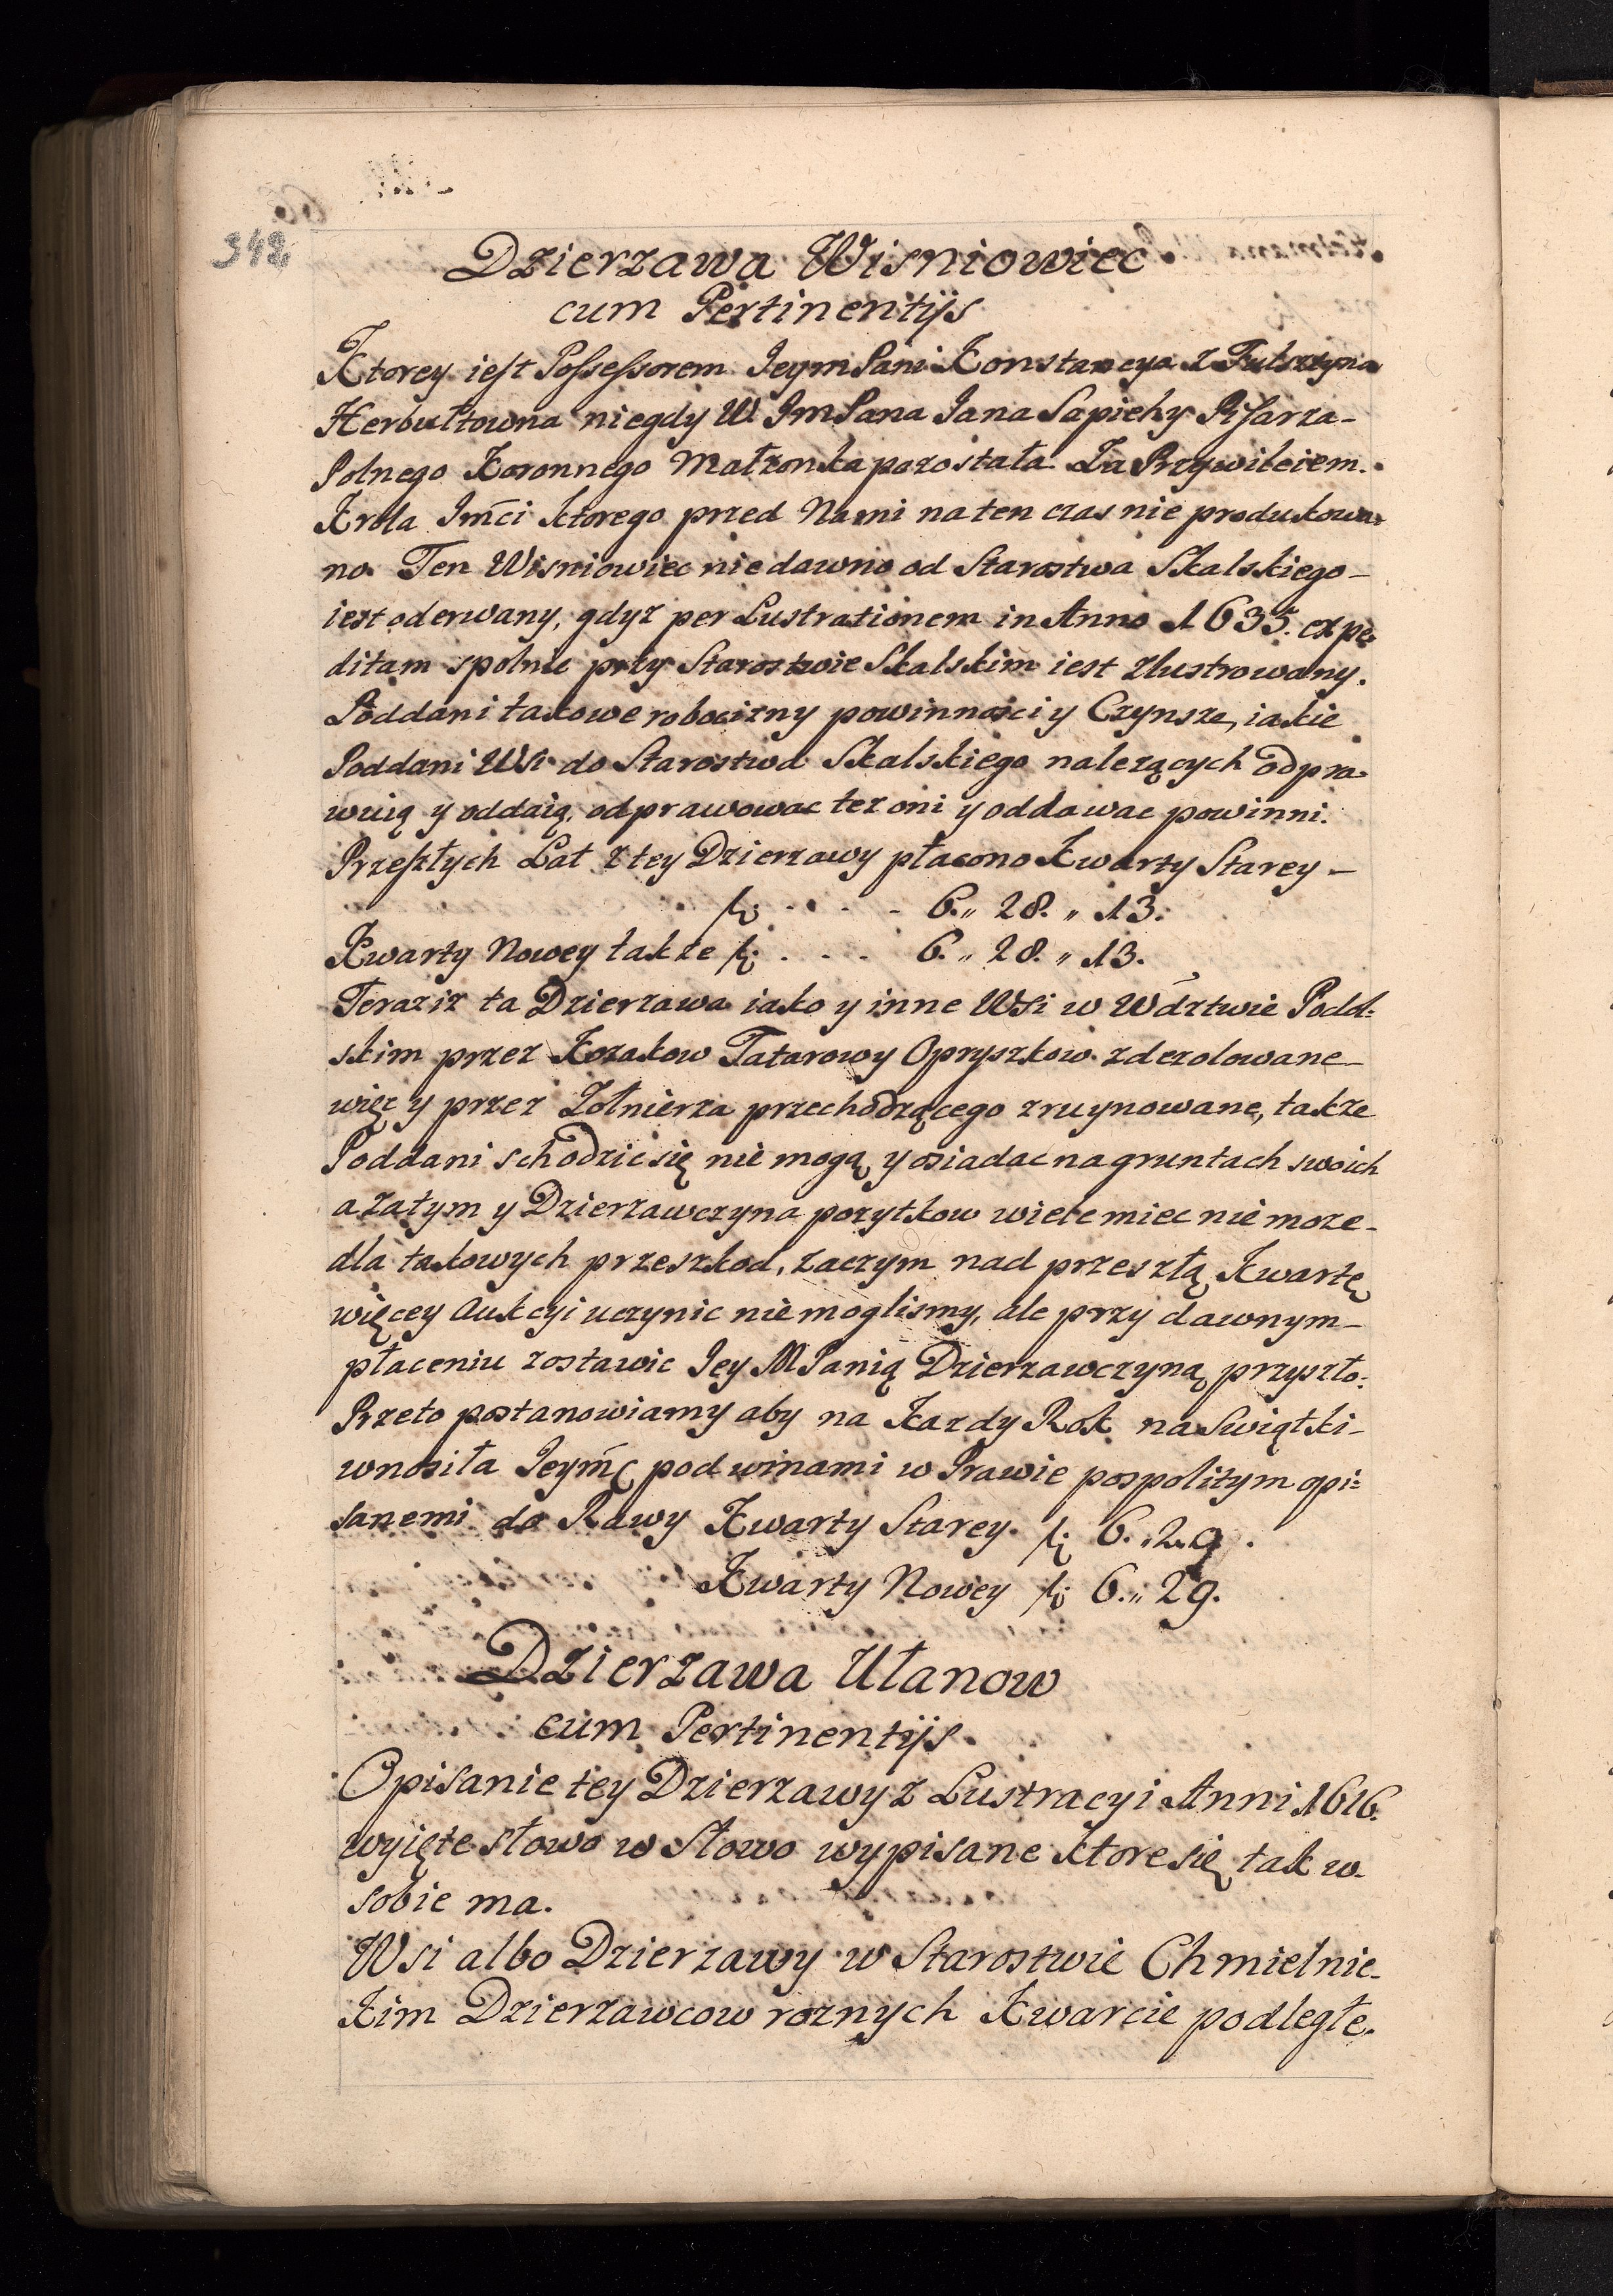 342
Dzierzawa Wisniowiec
cum Pertinentijs
Ktorey iest Possessorem Jeym Pani Konstancya z Fulsztyna
Herbultowna niegdy W. Jm Pana Jana Sapiehy Pisarza-
Polnego Koronnego Małzonka pozostała Za Przywileiem.
Krola Jmci ktorego przed Nami na ten czas nie produkowa-
no. Ten Wisniowiec niedawno od Starostwa Skalskiego-
iest oderwany, gdyz per Lustrationem in Anno 1635. expe-
ditam spolnie przy Starostwie Skalskim iest zlustrowany.
Poddani takowe robocizny powinnosci y Czynsze, iakie
Poddani Wsi do Starostwa Skalskiego nalezących odpra-
wuią y oddaią, odprawowac tez oni y oddawac powinni.
Przeszłych Lat z tey Dzierzawy płacono Kwarty Starey-
fl: . . . . 6.,, 28. ,, 13.
Kwarty Nowey takze fl: . . . . 6. ,, 28. ,, 13.
Teraz iz ta Dzierzawa iako y inne Wsi w Wdztwie Podol-
skim przez Kozakow Tatarow y Opryszkow zdezolowane-
więc y przez Zołnierza przechodzącego zruynowane, takze
Poddani schodzic się nie mogą y osiadac na gruntach swoich
a zatym y Dzierzawczyna pozytkow wiele miec nie moze-
dla takowych przeszkod, zaczym nad przeszłą Kwartę
więcey Aukcyi uczynic nie moglismy, ale przy dawnym-
płaceniu zostawic Jey M Panią Dzierzawczyną przyszło:
Przeto postanowiamy aby na Kazdy Rok na Swiątki-
wnosiła Jeymć pod winami w Prawie pospolitym opi-
sanemi do Rawy Kwarty Starey. fl: 6. ,, 29.
Kwarty Nowey fl: 6. ,, 29.
Dzierzawa Ułanow
cum Pertinentijs.
Opisanie tey Dzierzawy z Lustracyi Anni 1616.
wyięte słowo w słowo wypisane ktore się tak w
sobie ma.
Wsi albo Dzierzawy w Starostwie Chmielnic-
kim Dzierzawcow roznych Kwarcie podległe.